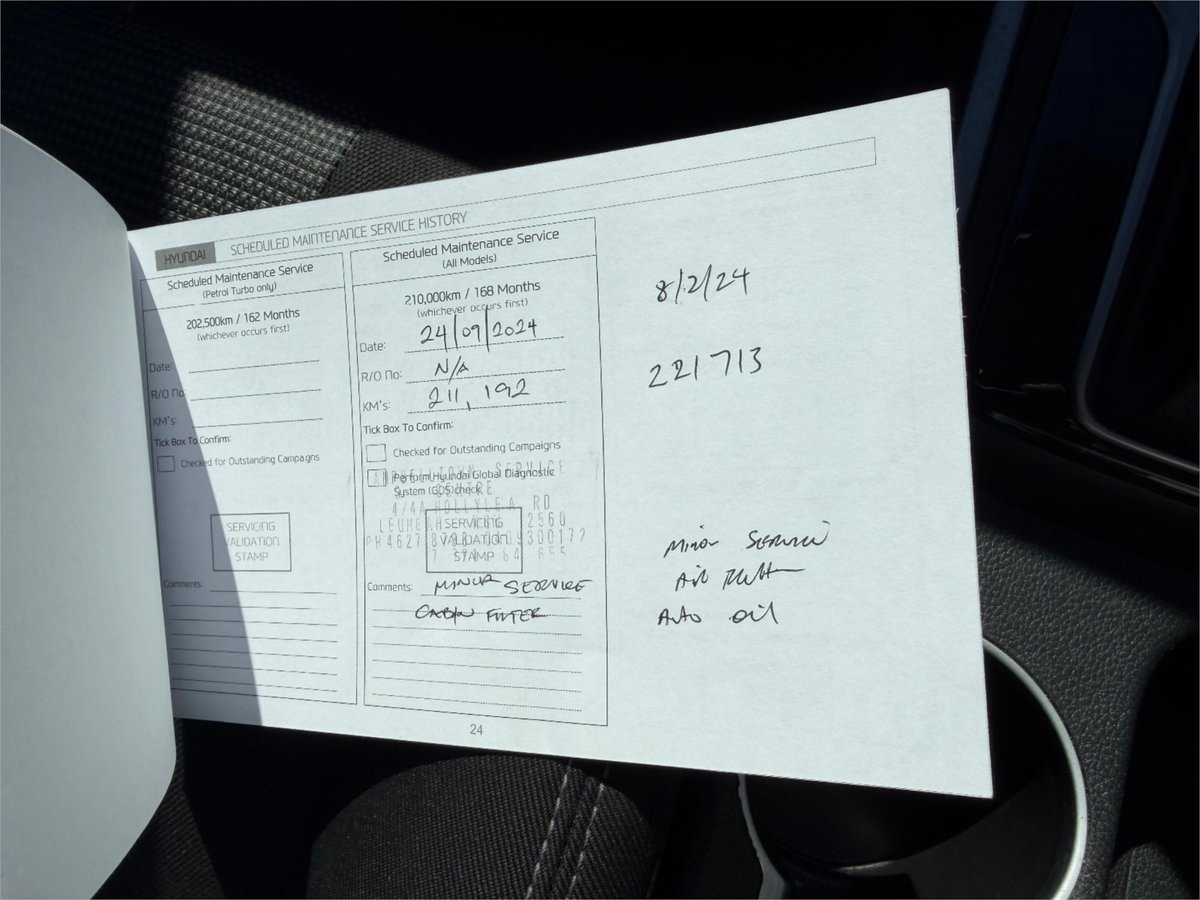 HYUNDAI SCHEDULED MAINTENANCE SERVICE HISTORY
Scheduled Maintenance Service
(Petrol Turbo only)
202,500km / 162 Months
(whichever occurs first)
Date:
R/O No
KM's:
Tick Box To Confirm:
Checked for Outstanding Campaigns
SERVICING
VALIDATION
STAMP
Comments:
Scheduled Maintenance Service
(All Models)
210,000km / 168 Months
(whichever occurs first)
Date: 24/09/2024
R/O No: N/A
KM's: 211,192
Tick Box To Confirm:
Checked for Outstanding Campaigns
Perform Hyundai Global Diagnostic
System (GDS) check
SERVICE
CENTRE
4/4A HOLLYLEA RD
LEUMEAH 2560
SERVICING
VALIDATION
STAMP
Comments: MINOR SERVICE
CABIN FILTER
24
8/2/24
221713
Minor Service
Air
Auto oil